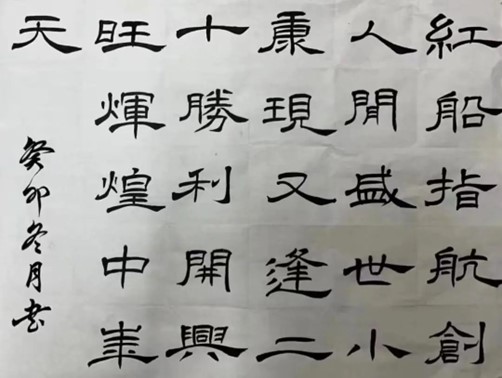 紅船指航創
人間盛世小
康現又逢二
十勝利開興
旺煇煌中華
天
癸卯冬月书